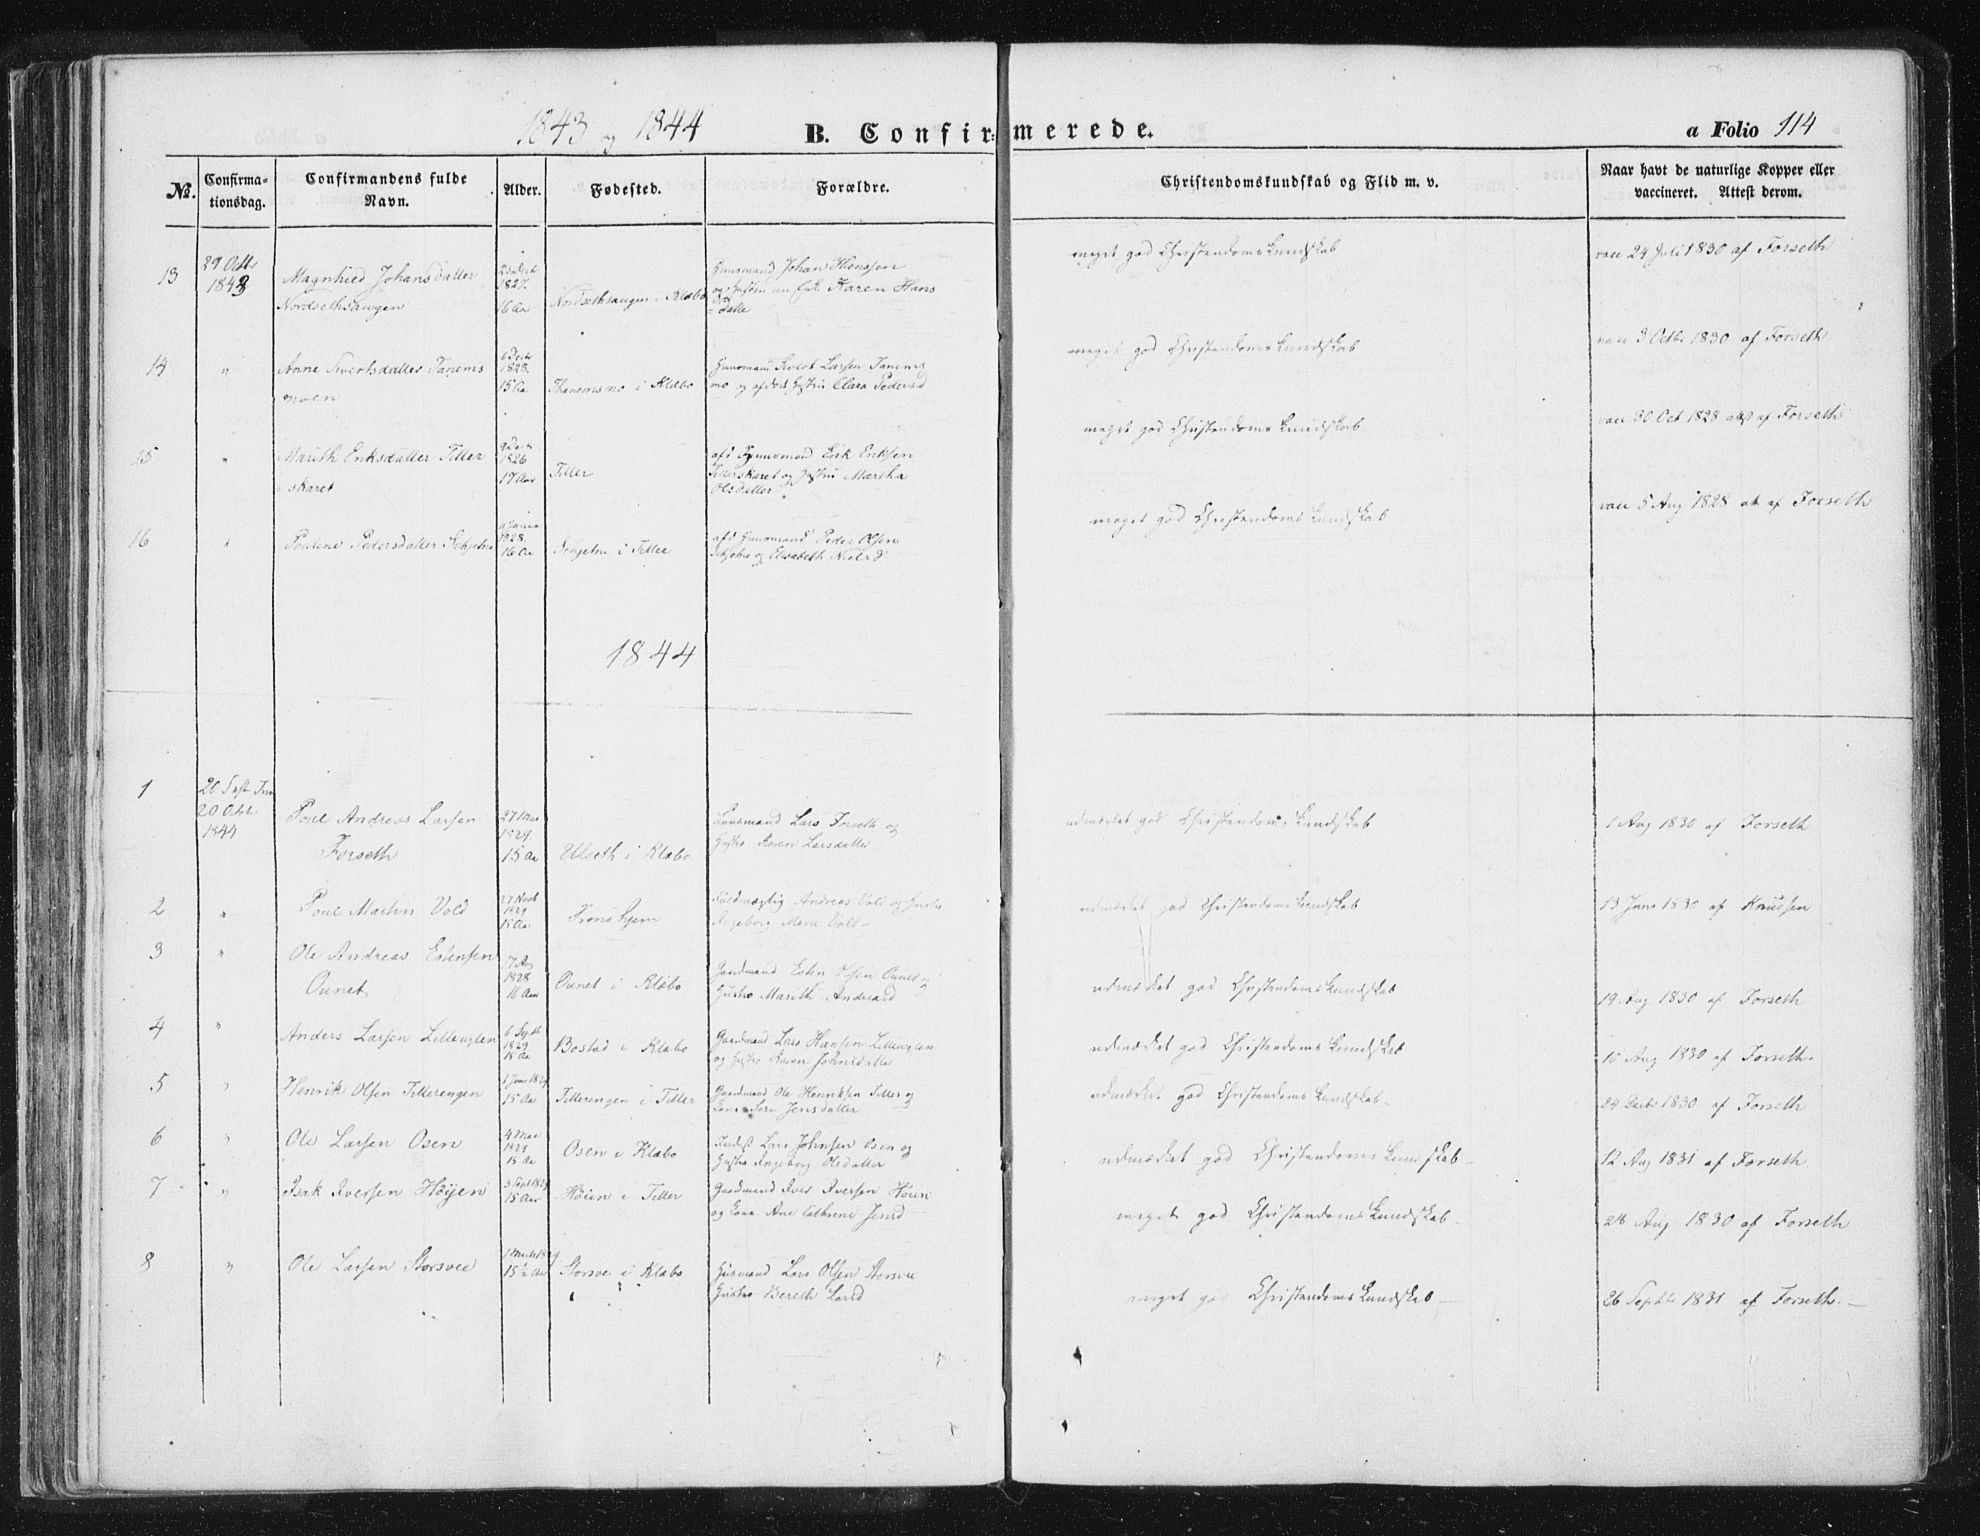 1843 og 1844
B. Confirmerede.
a Folio 114
No.
Confirmationsdag.
Confirmandens fulde Navn.
Alder.
Fødested.
Forældre.
Christendomskundskab og Flid m. v.
Naar havt de naturlige Kopper eller vaccineret. Attest derom.
13
29 Octb
1843
Magnhild Johansdatter
Nordsethsaugen
1827.
16 Aar
Nordsethsaugen i Klæbo
Huusmand Johan
Karen Hans
Datte
meget god Christendoms Kundskab
vac 24 Juli 1830 af Forseth
14
"
Anne Sivertsdatter Tanems
moen
6 Dec
1828.
15 Aa
Thanemsmo i Klæbo
Huusmand Sivert Larsen Tanems
mo og afdøde Hustru Clara Pedersd
meget god Christendoms Kundskab
vac 3 Octbr 1830 af Forseth
15
"
Marith Eriksdatter Tiller
skaret
1826
17 Aar
Tiller
afd Huusmand Erik Eriksen
Tillerskaret og Hustru Martha
Olsdatter
meget god Christendoms Kundskab
vac 30 Oct 1828 att af Forseth
16
"
Pauline Pedersdatter Schjetne
1828.
16 Aa
Schjetne i Tiller
afd Huusmand Peder Olsen
Schjetne og Elisabeth Nielsd
meget god Christendoms Kundskab
vac 5 Aug 1828 att af Forseth
1844
1
20 Octb
1844
Poul Andreas Larsen
Forseth
27 Mai
1829
15 Aa
Ulseth i Klæbo
Huusmand Lars Forseth og
Hustro Karen Larsdatter
udmærket god Christendoms Kundskab
1 Aug 1830 af Forseth
2
"
Poul Martin Vold
27 Novb
1829
15 Aa
Trondhjem
Andreas Vold og Hustro
Ingeborg Marie Vold
udmærket god Christendoms Kundskab
13 Juni 1830 af Knudsen
3
"
Ole Andreas Estensen
Ounet
17 Aug
1828
16 Aar
Ounet i Klæbo
Gaardmand Esten Olsen Ounet og
Hustro Marith Andreasd
udmærket god Christendoms Kundskab
19 Aug 1830 af Forseth
4
"
Anders Larsen Lilleuglen
6 Septb
1829
15 Aa
Bostad i Klæbo
Gaardmand Lars Hansen Lilleuglen
og Hustro Karen Johnsdatte
udmærket god Christendoms Kundskab
Aug 1830 af Forseth.
5
"
Henrik Olsen Tillerengen
15 Aa
Tillerengen i Tiller
Gaardmand Ole Henriksen Tiller og
Kone Siri Jensdatter
udmærket god Christendoms Kundskab.
24 Decbr 1830 af Forseth
6
"
Ole Larsen Osen
4 Mai
1829
15 Aa
Osen i Klæbo
Inderst Lars Johnsen Osen og
Hustro Ingeborg Olsdatter
udmærket god Christendoms Kundskab
12 Aug 1831 af Forseth
7
"
Isak Iversen Høijen
3 Sept 1829
15 Aar
Høien i Tiller
Gaardmand Iver Iversen Høien
og Kone Ane Cathrine Jensd
meget god Christendoms Kundskab.
28 Aug 1830 af Forseth
8
"
Ole Larsen Storvee
1 Marts 1829
15½ Aa
Storve i Klæbo
Huusmand Lars Olsen Storvee
Hustro Bereth Larsd
meget god Christendoms Kundskab
26 Septbr 1831 af Forseth.